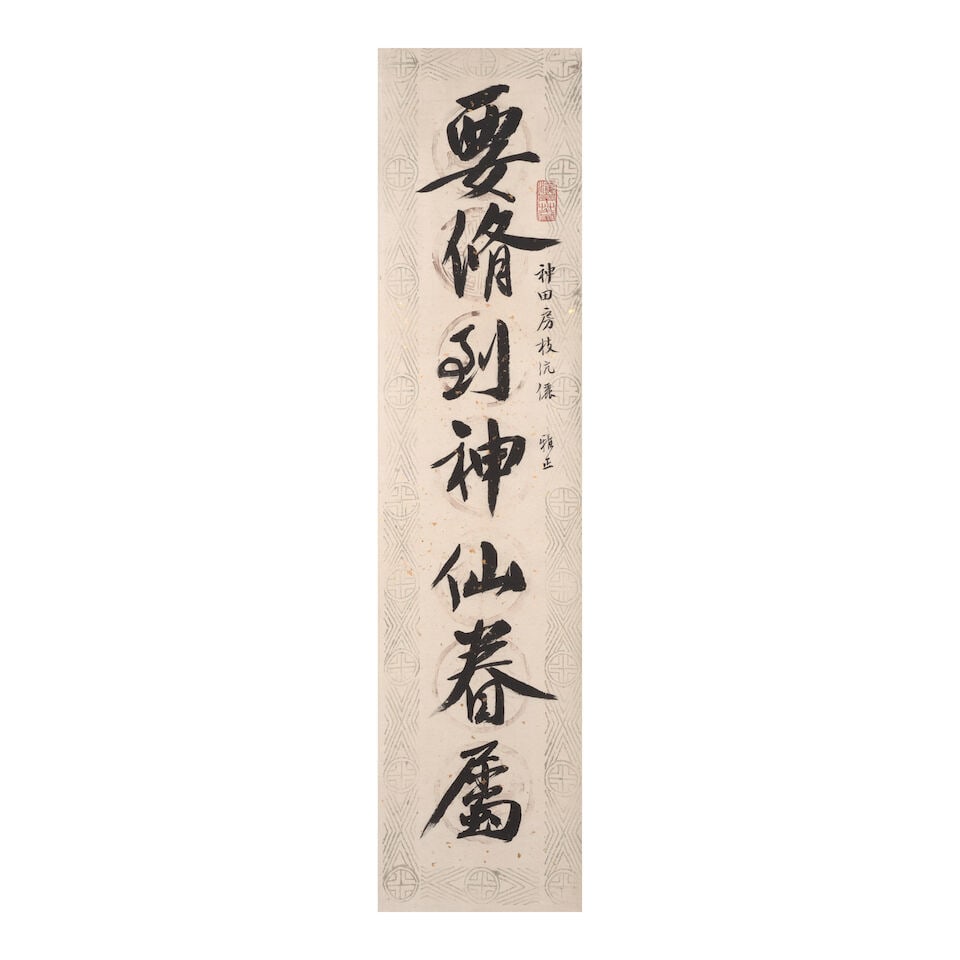 要脩到神仙眷属
神田房枝伉儷 雅正